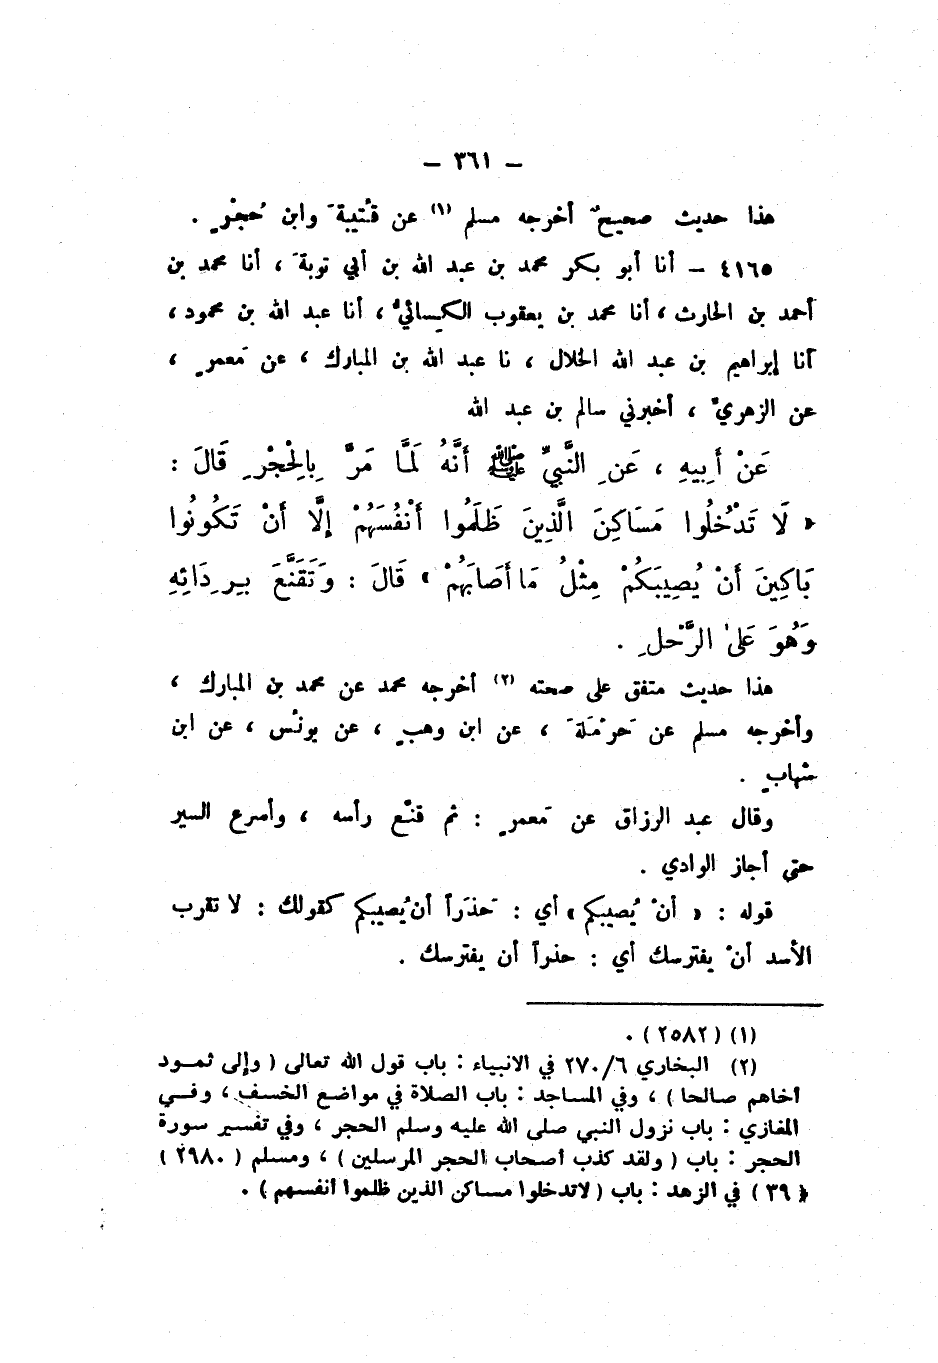 – ٣٦١ –
هذا حديث صحيحٌ أخرجه مسلم (١) عن قُتَيبةَ وابن حُجْرٍ .
٤١٦٥ – أنا أبو بكر محمد بن عبد الله بن أبي توبةَ ، أنا محمد بن
أحمد بن الحارث ، أنا محمد بن يعقوب الكِسائيُّ ، أنا عبد الله بن محمود ،
أنا إبراهيم بن عبد الله الخلال ، نا عبد الله بن المبارك ، عن مَعمرٍ ،
عن الزهريِّ ، أخبرني سالم بن عبد الله
عَنْ أَبِيهِ ، عَنِ النَّبيِّ ﷺ أَنَّهُ لَمَّا مَرَّ بِالحِجْرِ قَالَ :
« لَا تَدْخُلُوا مَسَاكِنَ الَّذِينَ ظَلَمُوا أَنْفُسَهُمْ إِلَّا أَنْ تَكُونُوا
بَاكِينَ أَنْ يُصِيبَكُمْ مِثْلُ مَا أَصَابَهُمْ » قَالَ : وَتَقَنَّعَ بِرِدَائِهِ
وَهُوَ عَلىٰ الرَّحْلِ .
هذا حديث متفق على صحته (٢) أخرجه محمد عن محمد بن المبارك ،
وأخرجه مسلم عن حَرْمَلَةَ ، عن ابن وهبٍ ، عن يونُس ، عن ابن
شهابٍ .
وقال عبد الرزاق عن مَعمرٍ : ثم قنَّع رأسه ، وأسرع السير
حتى أجاز الوادي .
قوله : « أنْ يُصيبكم » أي : حَذَراً أن يُصيبكم كقولك : لا تقرب
الأسد أنْ يفترسك أي : حذراً أن يفترسك .
(١) (٢٥٨٢) .
(٢) البخاري ٢٧٠/٦ في الانبياء : باب قول الله تعالى ( وإلى ثمود
أخاهم صالحا ) ، وفي المساجد : باب الصلاة في مواضع الخسف ، وفي
المغازي : باب نزول النبي صلى الله عليه وسلم الحجر ، وفي تفسير سورة
الحجر : باب ( ولقد كذب أصحاب الحجر المرسلين ) ، ومسلم ( ٢٩٨٠ )
( ٣٩ ) في الزهد : باب ( لاتدخلوا مساكن الذين ظلموا أنفسهم ) .